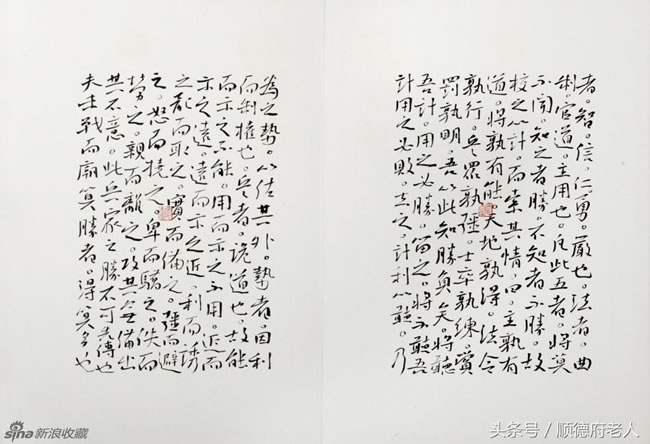 者。智。信。仁。勇。嚴也。法者。曲
制。官道。主用也。凡此五者。將莫
不聞。知之者勝。不知者不勝。故
校之以計。而索其情。曰。主孰有
道。將孰有能。天地孰得。法令
孰行。兵眾孰强。士卒孰練。賞
罰孰明。吾以此知勝負矣。將聽
吾計。用之必勝。留之。將不聽吾
計用之必敗。去之。計利以聽。乃
為之勢。以佐其外。勢者。因利
而制權也。兵者。詭道也。故能
而示之不能。用而示之不用。近而
示之遠。遠而示之近。利而誘
之。亂而取之。實而備之。强而避
之。怒而撓之。卑而驕之。佚而
勞之。親而離之。攻其無備出
其不意。此兵家之勝不可先傳也
夫未戰而廟算勝者。得算多也
sina新浪收藏
头条号 / 顺德府老人